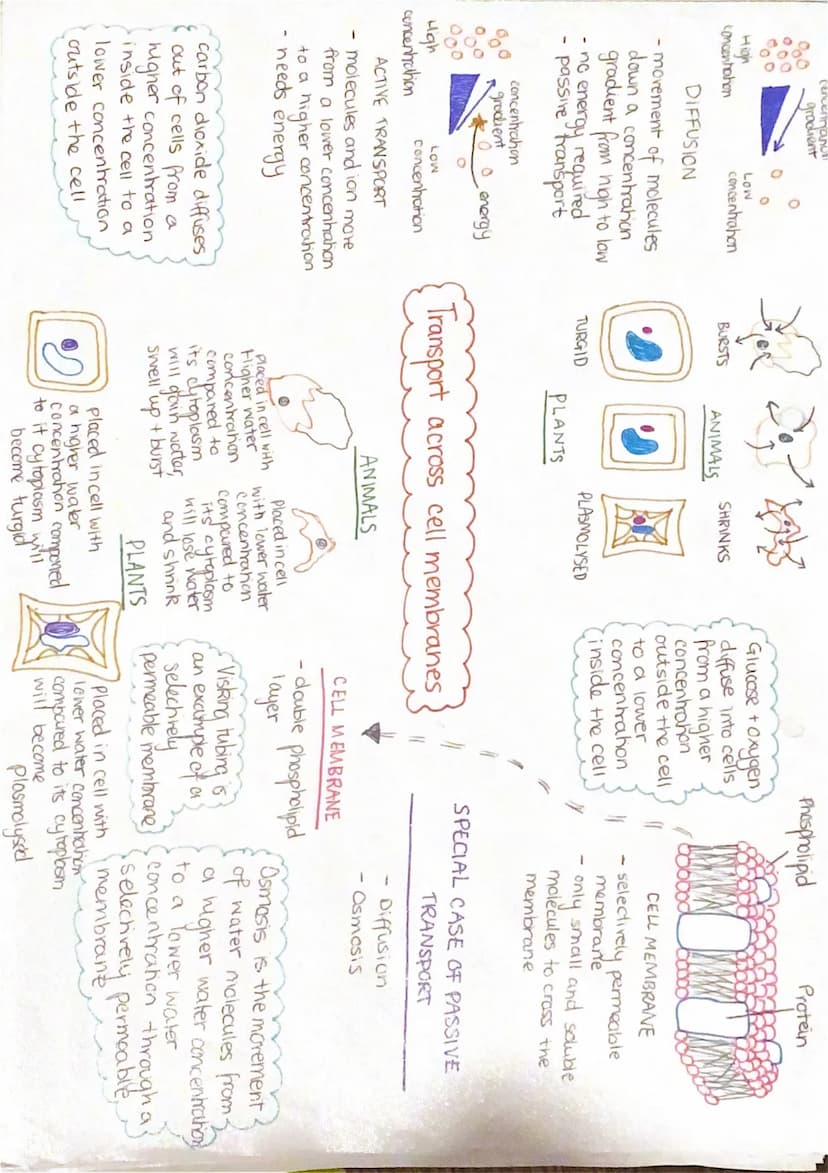 concentration
gradient
High
concentration
Low
concentration
DIFFUSION
- movement of molecules
down a concentration
gradient from high to low
- no energy required
- passive transport
BURSTS
ANIMALS
SHRINKS
TURGID
PLANTS
PLASMOLYSED
Glucose + oxygen
diffuse into cells
from a higher
concentration
outside the cell
to a lower
concentration
inside the cell
Phospholipid
Protein
CELL MEMBRANE
- selectively permeable
membrane
- only small and soluble
molecules to cross the
membrane
concentration
gradient
energy
High
concentration
Low
concentration
ACTIVE TRANSPORT
- molecules and ion move
from a lower concentration
to a higher concentration
- needs energy
Transport across cell membranes
SPECIAL CASE OF PASSIVE
TRANSPORT
- Diffusion
- Osmosis
carbon dioxide diffuses
out of cells from a
higher concentration
inside the cell to a
lower concentration
outside the cell
ANIMALS
placed in cell with
Higher water
concentration
compared to
its cytoplasm
will gain water,
swell up + burst
placed in cell
with lower water
concentration
compared to
its cytoplasm
will lose water
and shrink
CELL MEMBRANE
- double phospholipid
layer
Visking tubing is
an example of a
selectively
permeable membrane
Osmosis is the movement
of water molecules from
a higher water concentration
to a lower water
concentration through a
selectively permeable
membrane
PLANTS
placed in cell with
a higher water
concentration compared
to it cytoplasm will
become turgid
placed in cell with
lower water concentration
compared to its cytoplasm
will become
plasmolysed